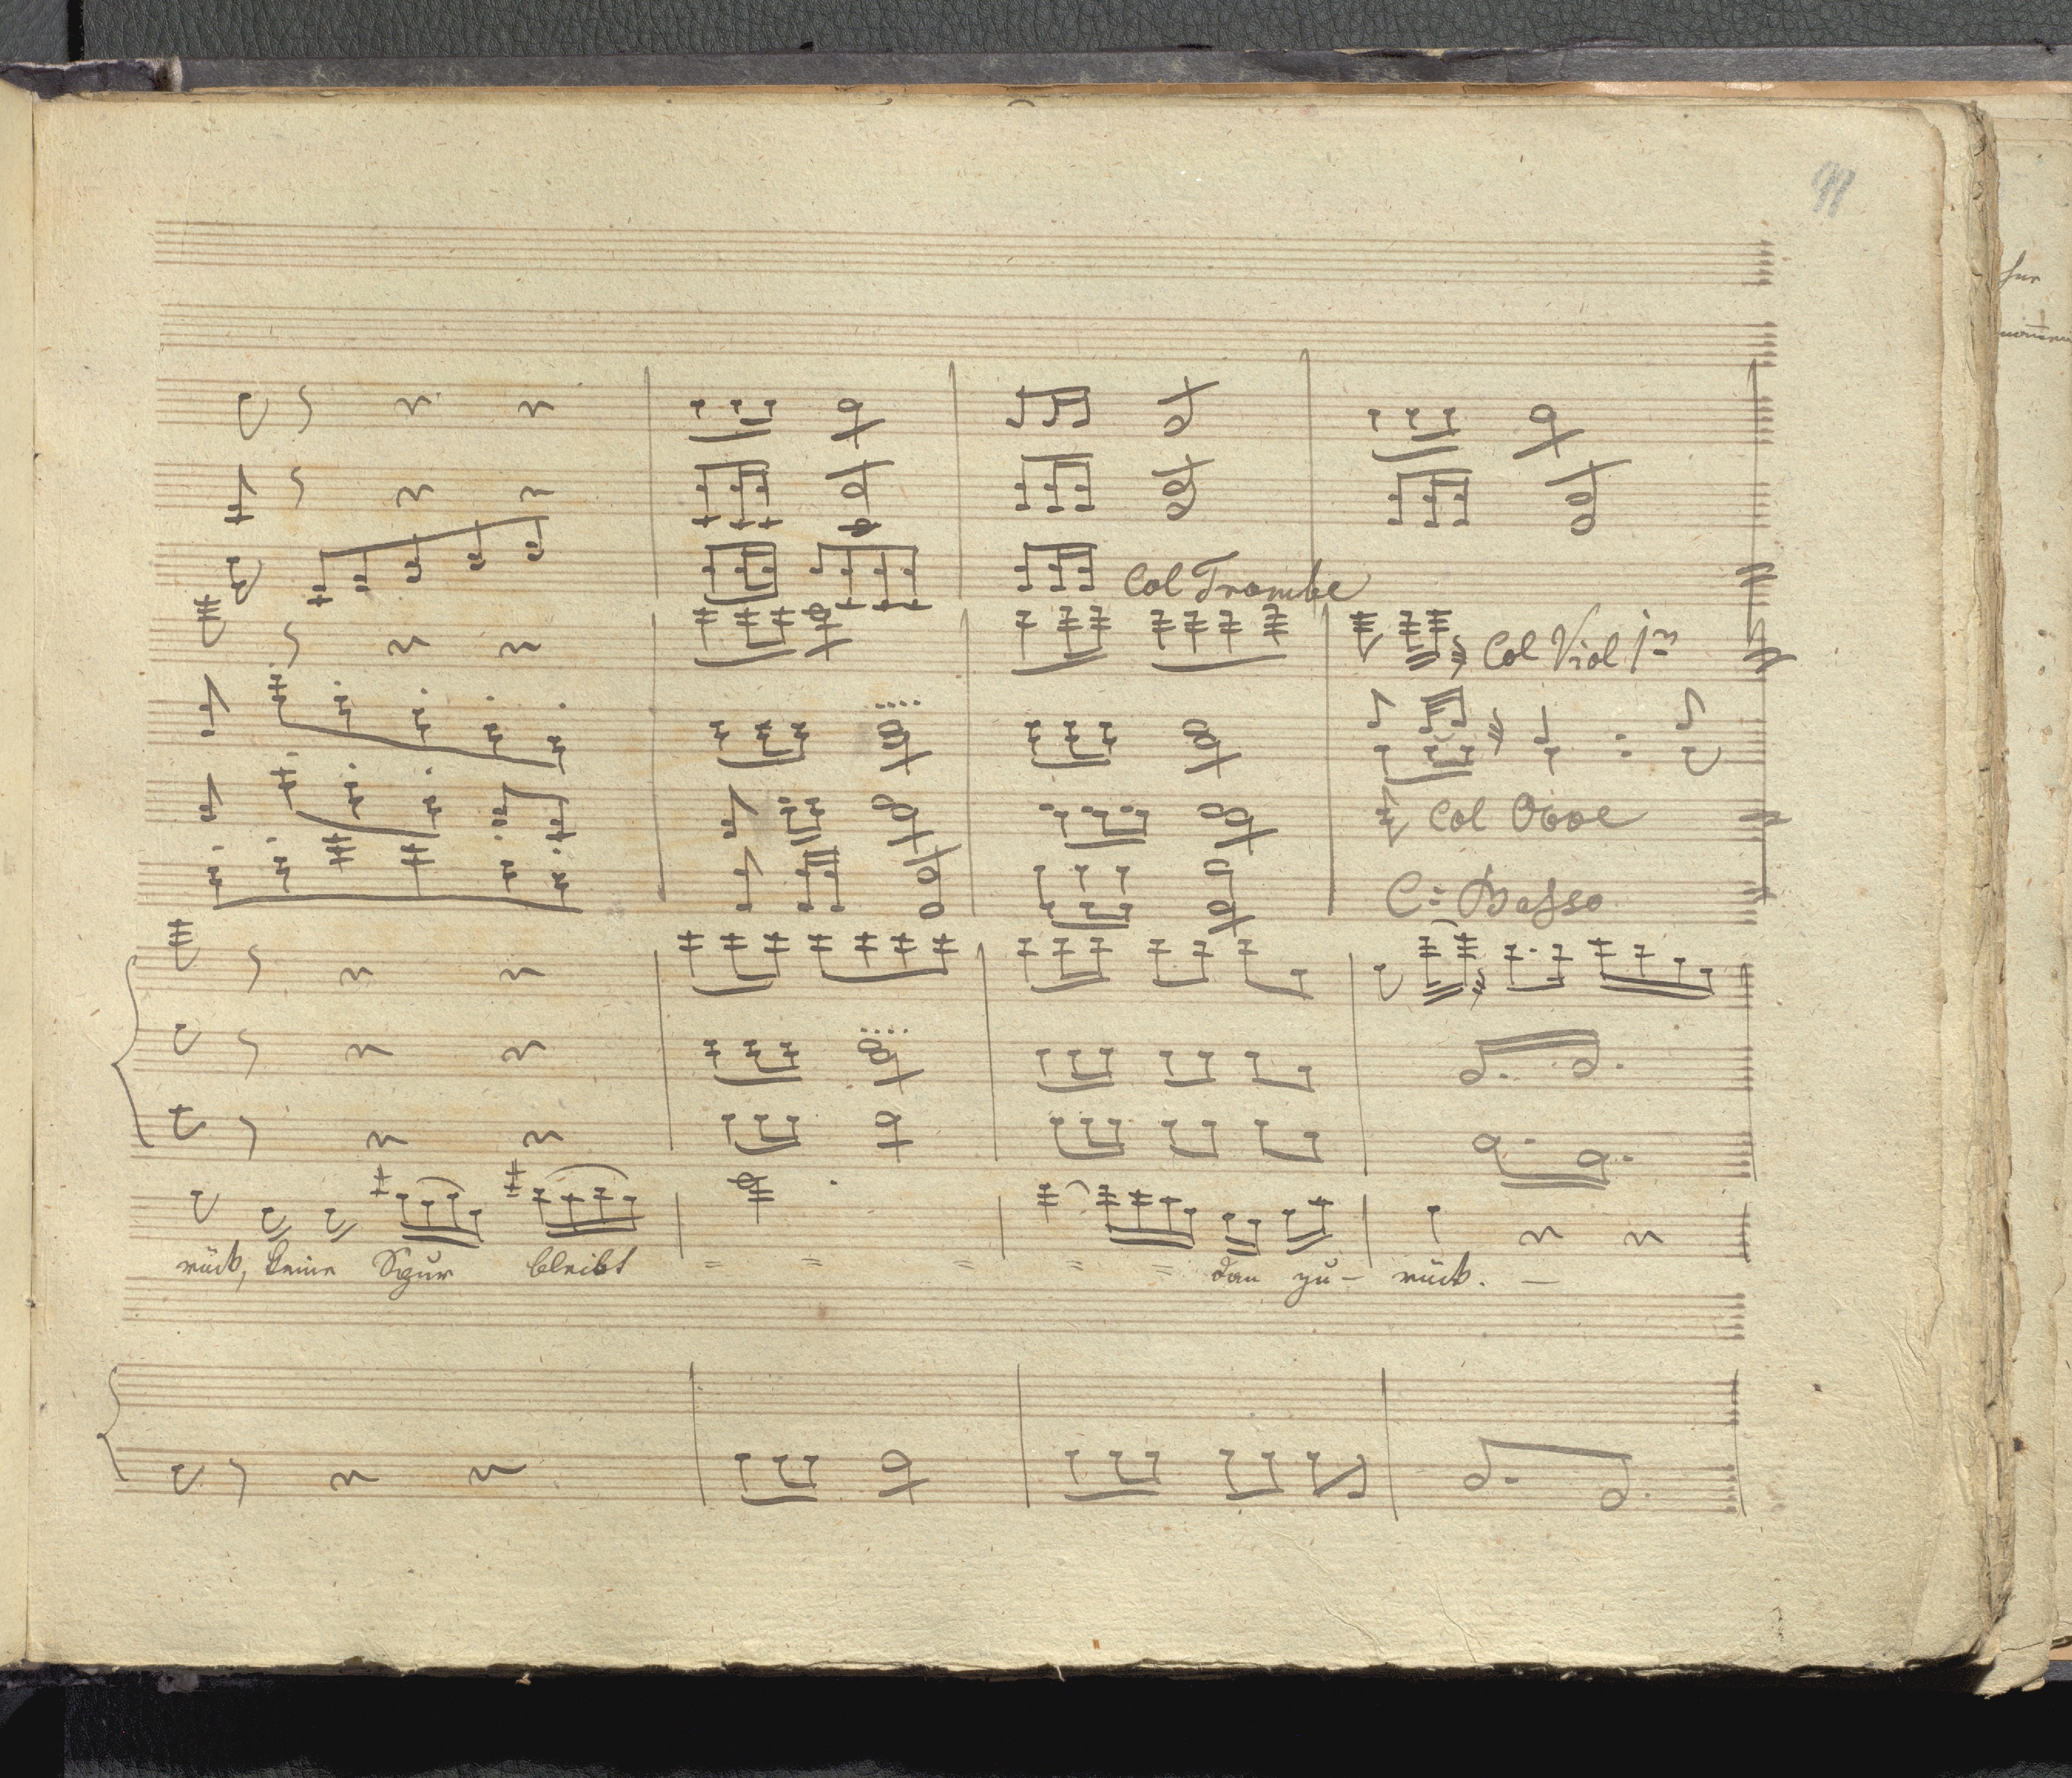 Col Trombe
Col Viol 1mo
Col Oboe
C: Basso
rück, keine Spur bleibt = = = = = dan zu- rück. -